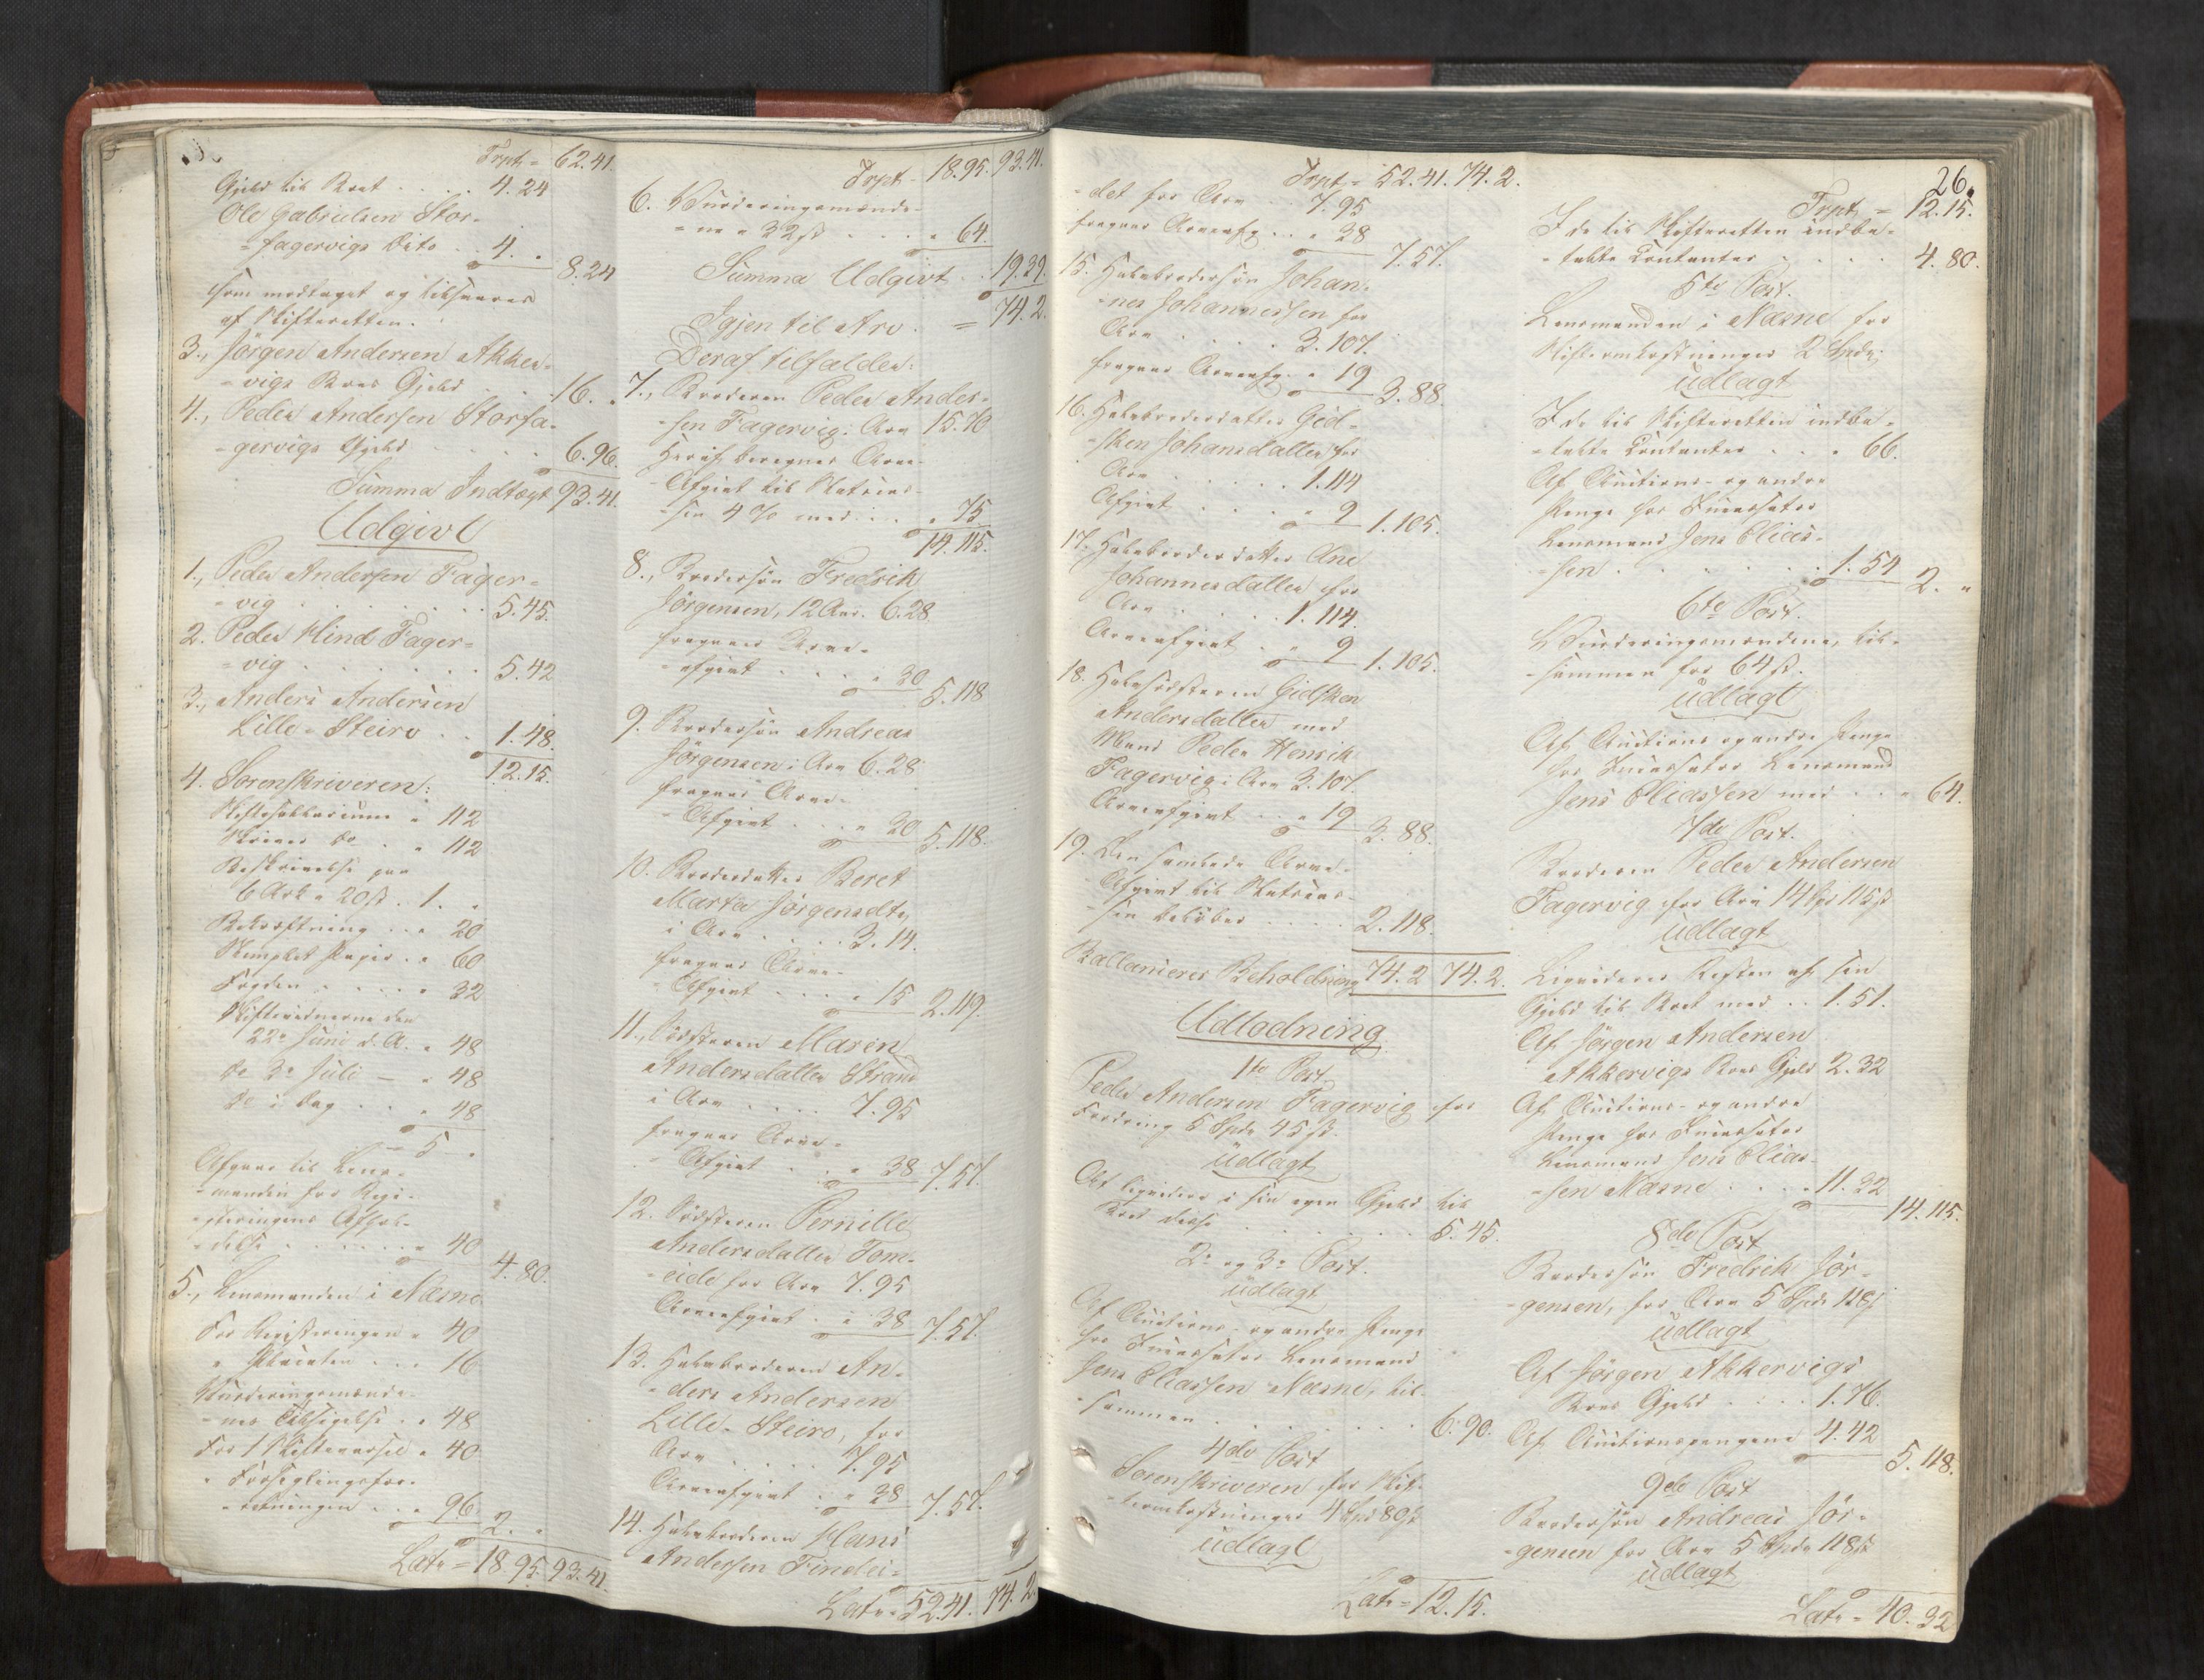 Trpt = 62.41.
Gjeld til Boet . . . . 4.24
Ole Gabrielsen Stor-
= fagervigs Dito . . 4. „
8.24
som modtaget og tilsvares
af Skifteretten.
3., Jörgen Andersen Akker-
= vigs Boes Gjeld . . . 16. „
4., Peder Andersen Storfa-
= gervigs Gjeld . . . . 6.96.
Summa Indtægt 93.41.
Udgivt
1., Peder Andersen Fager=
= vig . . . . . . . 5.45.
2. Peder Hind Fager=
= vig . . . . . . 5.42
3., Anders Andersen
Lille=Steiro . . 1.48.
12.15.
4. Sorenskriveren:
Skiftesallarium „ 112
Skriver do . „ 112
Beskrivelse paa
6 Ark a 20 ß . 1. „
Bekræftning . . „ 20
Stemplet Papir . „ 60
Fogden . . . . „ 32
Skiftevidnerne den
22de Juni d. A. „ 48
do 3de Juli — „ 48
do i Dag . . „ 48
= 5 „
Afgaar til Lens-
= manden for Regi-
= streringens Afhol-
= delse . . . . . . „ 40
4.80.
5., Lensmanden i Næsne
For Registeringen „ 40
„ Placaten . . . 16
Vurderingsmænde-
= nes Tilsigelse . „ 48
For 1 Skiftevarsel „ 40
„ Forseglingsfor-
= retningen . . „ 96.
2. „
Latr = 18.95. 93.41.
Trpt = 18.95. 93.41.
6. Vurderingsmænde-
= ne a 32 ß . . . . „ 64.
Summa Udgivt . . 19.39.
Igjen til Arv . = 74.2.
Deraf tilfalder:
7., Broderen Peder Ander-
= sen Fagervig: Arv 15.70
Heraf beregnes Arve-
= Afgivt til Statscas-
= sen 4 % med . . „ 75
14.115.
8., Brodersön Fredrik
Jörgensen, 12 Aar. 6.28.
fragaaer Arve-
= afgivt . . . . „ 30
5.118
9. Brodersön Andreas
Jörgensen i Arv 6.28
fragaaer Arve-
= Afgivt . . . „ 30 5.118.
10. Broderdatter Beret
Marta Jörgensdtr
i Arv . . . . 3.14.
fragaaer Arve-
= Afgivt . . . „ 15 2.119.
11., Södsteren Maren
Andersdatter Strand
i Arv . . . . 7.95
fragaaer Arve-
= Afgivt . . „ 38 7.57.
12. Södsteren Pernille
Andersdatter Tom-
= eide for Arv 7.95
Arveafgivt . „ 38 7.57.
13. Halvbroderen An-
= ders Andersen
Lille-Steiro, for
Arv . . . . . 7.95
Arveafgivt . „ 38 7.57.
14. Halvbroderen Hans
Andersen Findei-
Latr = 52.41. 74.2
Trpt = 52.41. 74.2.
= det for Arv . . 7.95
fragaaer Arveafg . . „ 38
7.57.
15. Halvbrodersön Johan-
= nes Johannessen for
Arv . . . . . 3.107.
fragaaer Arveafg. „ 19 3.88.
16. Halvbroderdatter Gid-
= sken Johansdatter for
Arv . . . . . 1.114
Afgivt . . . . „ 9 1.105.
17. Halvbroderdatter Ane
Johannesdatter for
Arv . . . . . 1.114.
Arveafgivt . „ 9 1.105.
18. Halvsödsteren Gidsken
Andersdatter med
Mand Peder Henrik
Fagervig i Arv 3.107.
Arveafgivt . . „ 19 3.88.
19. Den samlede Arve-
= Afgivt til Statscas-
= sen belöber . . . . 2.118.
Ballancerer Beholdning 74.2 74.2.
Udlodning
1te Post.
Peder Andersen Fagervig for
Fordring 5 Spdr 45 ß.
Udlagt
At liqvidere i sin egen Gjeld til
Boet disse . . . . . . . 5.45.
2de og 3de Post.
Udlagt
Af Auctions- og andre Penge
hos Incassator Lensmand
Jens Eliassen Næsne, til-
= sammen . . . . . . . 6.90.
4de Post
Sorenskriveren for Skif-
= teromkostninger 4 Spd 80 ß
Udlagt
Latr = 12.15.
26.
Trpt = 12.15.
I de til Skifteretten indbe-
= talte Contanter . . . . 4.80.
5te Post.
Lensmanden i Næsne for
Skifteomkostninger 2 Spdr.
Udlagt
I de til Skifteretten indbe-
= talte Contanter . . . „ 66.
Af Auctions- og andre
Penge hos Incassator
Lensmand Jens Elias-
= sen . . . . . . 1.54
2. „
6te Post.
Vurderingsmændene, til-
= sammen for 64 ß.
Udlagt
Af Auctions og andre Penge
hos Incassator Lensmand
Jens Eliassen med . . „ 64.
7de Post.
Broderen Peder Andersen
Fagervig for Arv 14 Spd 115 ß
Udlagt
Liqviderer Resten af sin
Gjeld til Boet med . . 1.51.
Af Jörgen Andersen
Akkervigs Boes Gjeld 2.32
Af Auctions- og andre
Penge hos Incassator
Lensmand Jens Elias-
= sen Næsne . . . . 11.32
14.115.
8de Post
Brodersön Fredrik Jör-
= gensen, for Arv 5 Spdr 118 ß
Udlagt
Af Jörgen Akkervigs
Boes Gjeld . . . . 1.76.
Af Auctionspengene 4.42
5.118.
9de Post
Brodersön Andreas Jör-
= gensen for Arv 5 Spdr 118 ß
Udlagt
Latr = 40.32